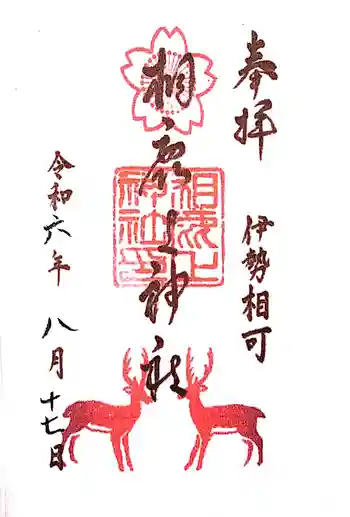 奉拝
伊勢相可
相鹿上神社
相鹿上
神社印
令和六年
八月十七日